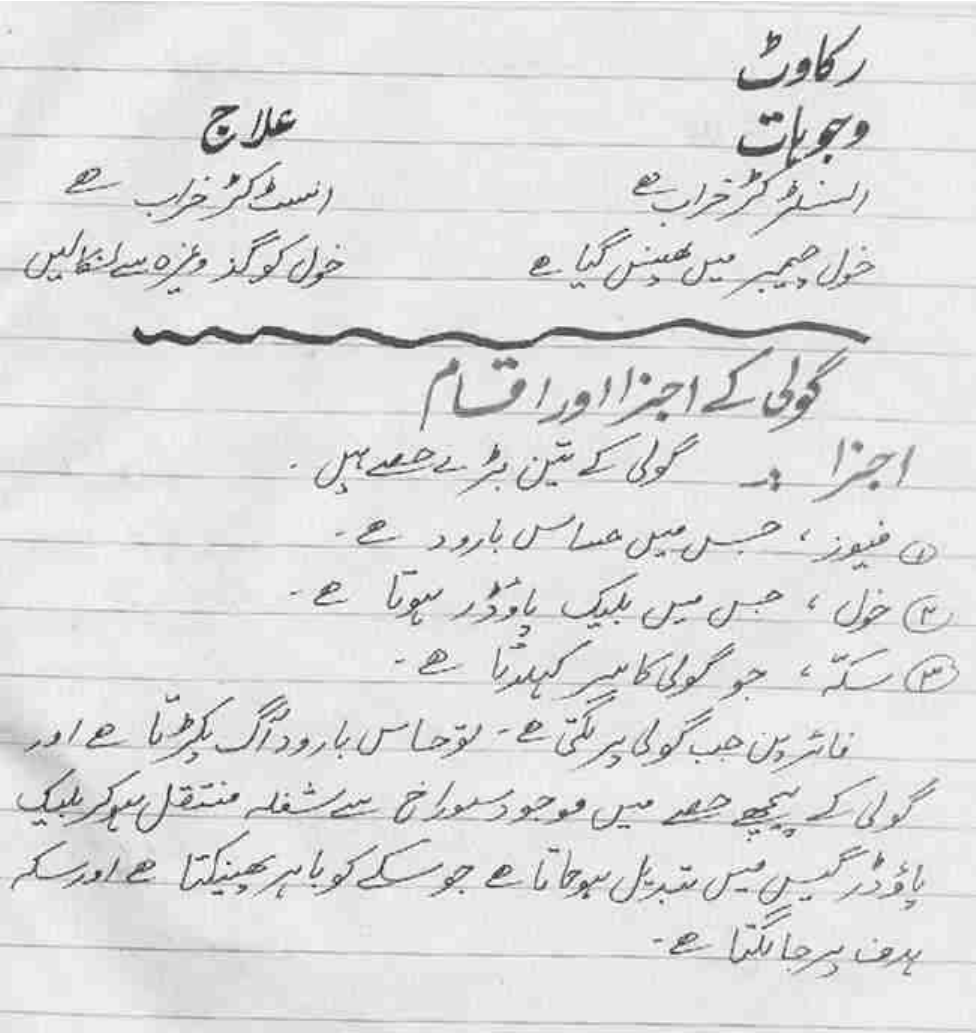 رکاوٹ
وجوہات علاج
اسٹرکٹر خراب ہے اسٹرکٹر خراب ہے
خول چیمبر میں پھنس گیا ہے خول کو گز وغیرہ سے نکالیں
گولی کے اجزا اور اقسام
اجزا :۔ گولی کے تین بڑے حصے ہیں ۔
① فیوز ، جس میں حساس بارود ہے ۔
② خول ، جس میں بلیک پاؤڈر ہوتا ہے ۔
③ سکّہ ، جو گولی کا سر کہلاتا ہے ۔
فائر پن جب گولی پر لگتی ہے ۔ تو حساس بارود آگ پکڑتا ہے اور
گولی کے پیچھے حصے میں موجود سوراخ سے شعلہ منتقل ہوکر بلیک
پاؤڈر گیس میں تبدیل ہوجاتا ہے جو سکے کو باہر پھینکتا ہے اور سکہ
ہدف پر جا لگتا ہے ۔